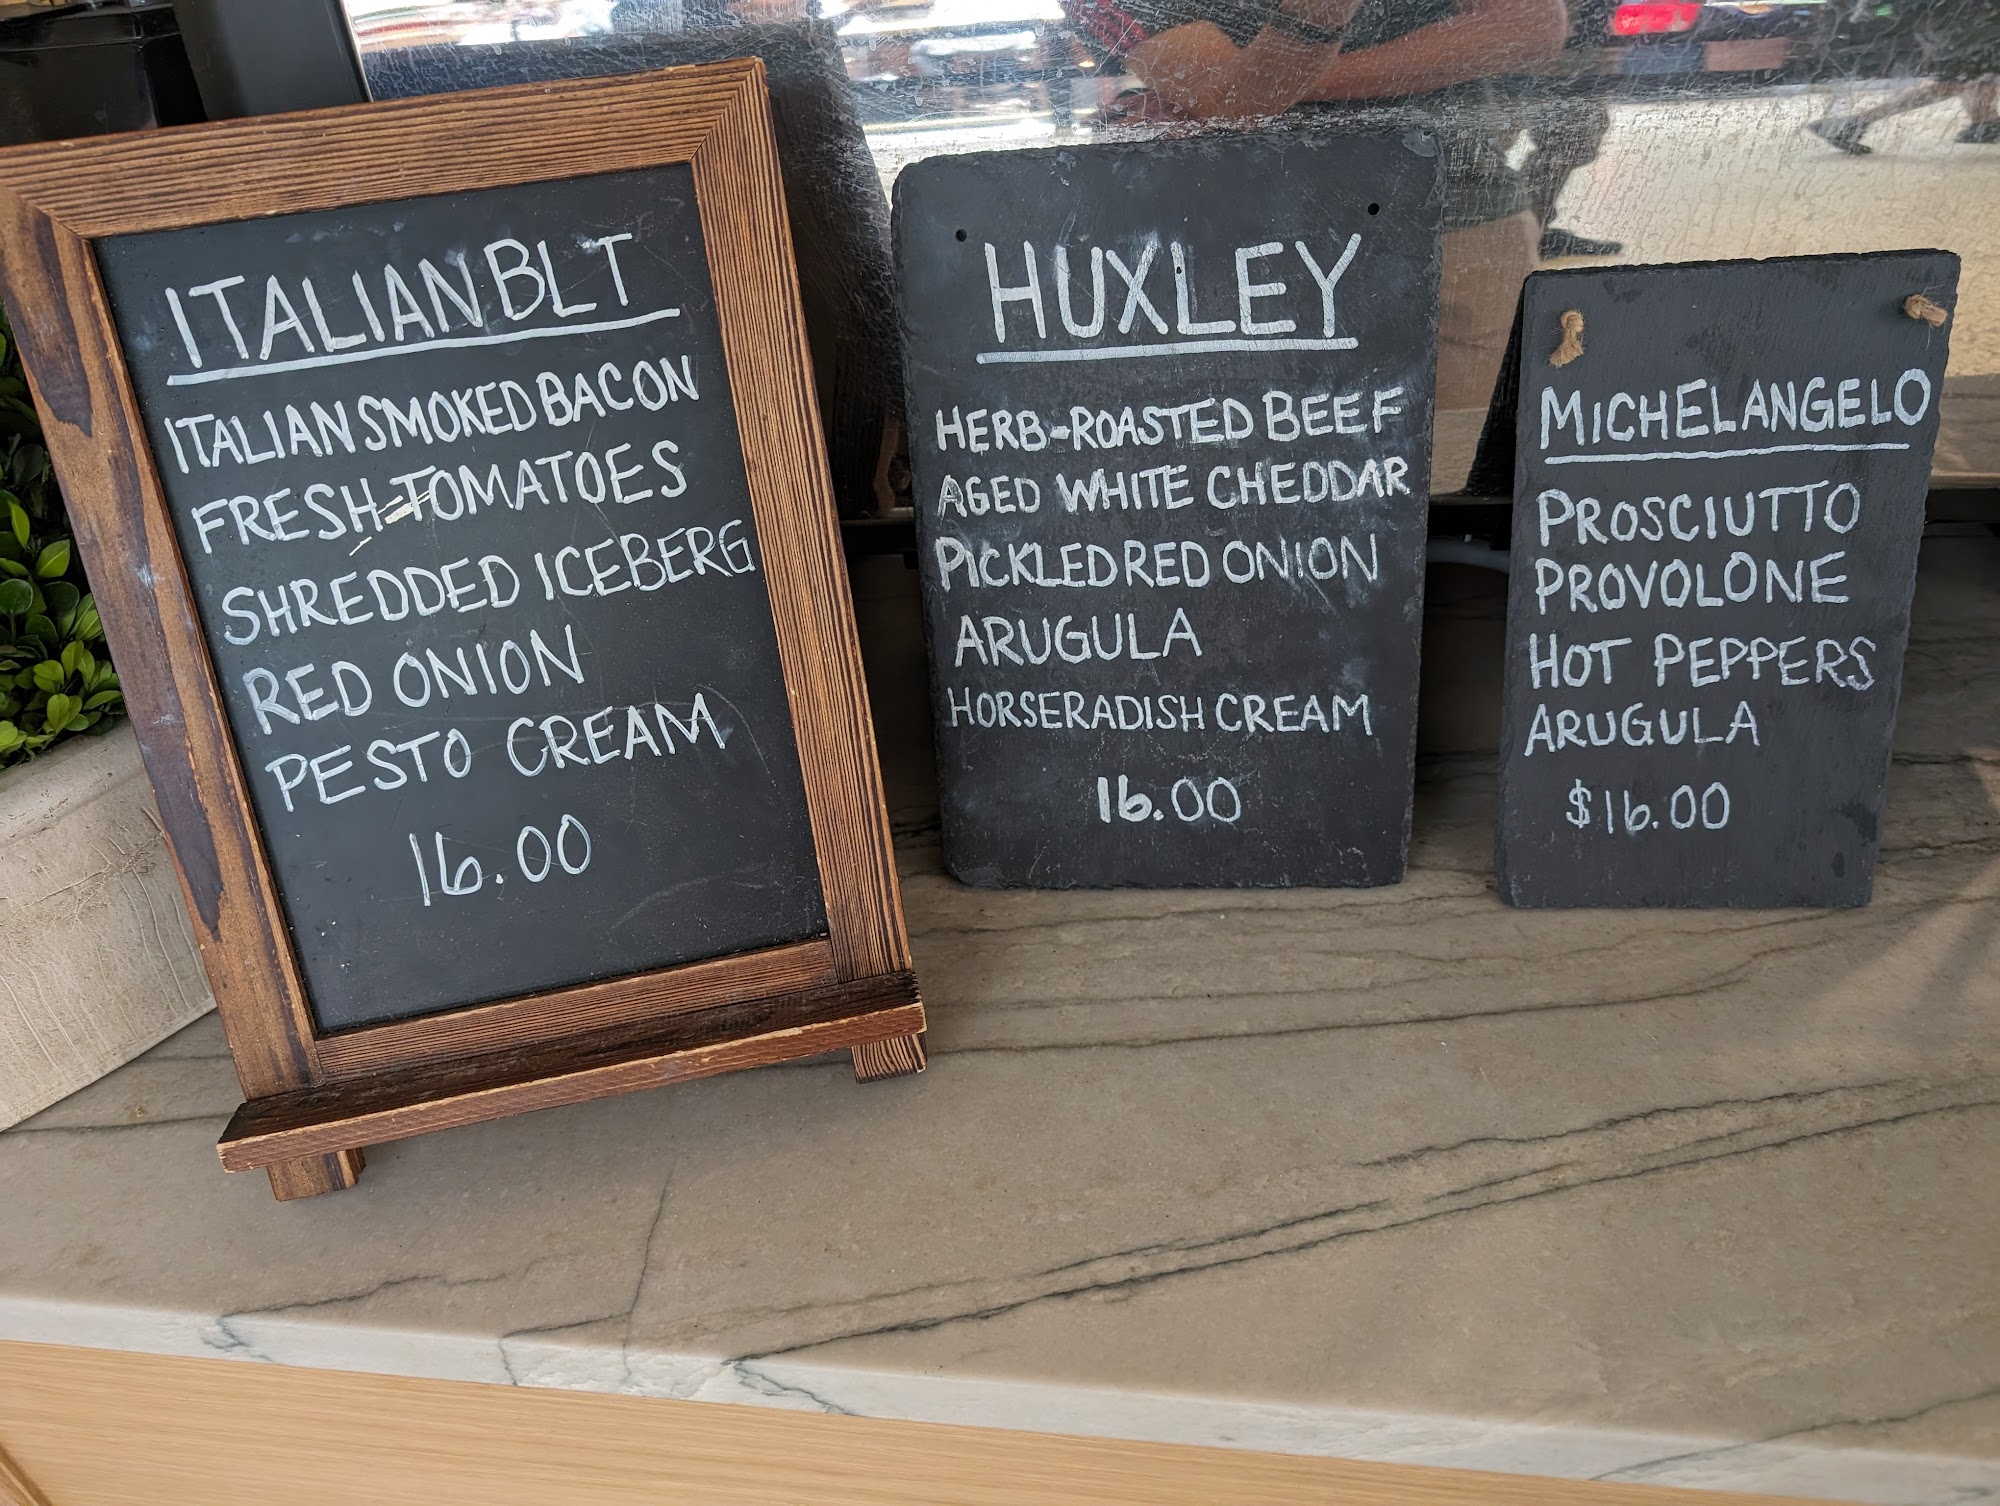 ITALIAN BLT
ITALIAN SMOKED BACON
FRESH TOMATOES
SHREDDED ICEBERG
RED ONION
PESTO CREAM
16.00
HUXLEY
HERB-ROASTED BEEF
AGED WHITE CHEDDAR
PICKLED RED ONION
ARUGULA
HORSERADISH CREAM
16.00
MICHELANGELO
PROSCIUTTO
PROVOLONE
HOT PEPPERS
ARUGULA
$16.00